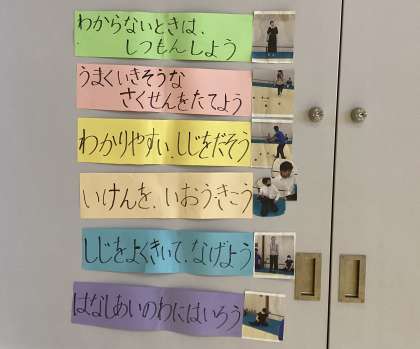 わからないときは、
しつもんしよう
うまくいきそうな
さくせんをたてよう
わかりやすい、しじをだそう
いけんを、いおうきこう
しじをよくきいて、なげよう
はなしあいのわにはいろう